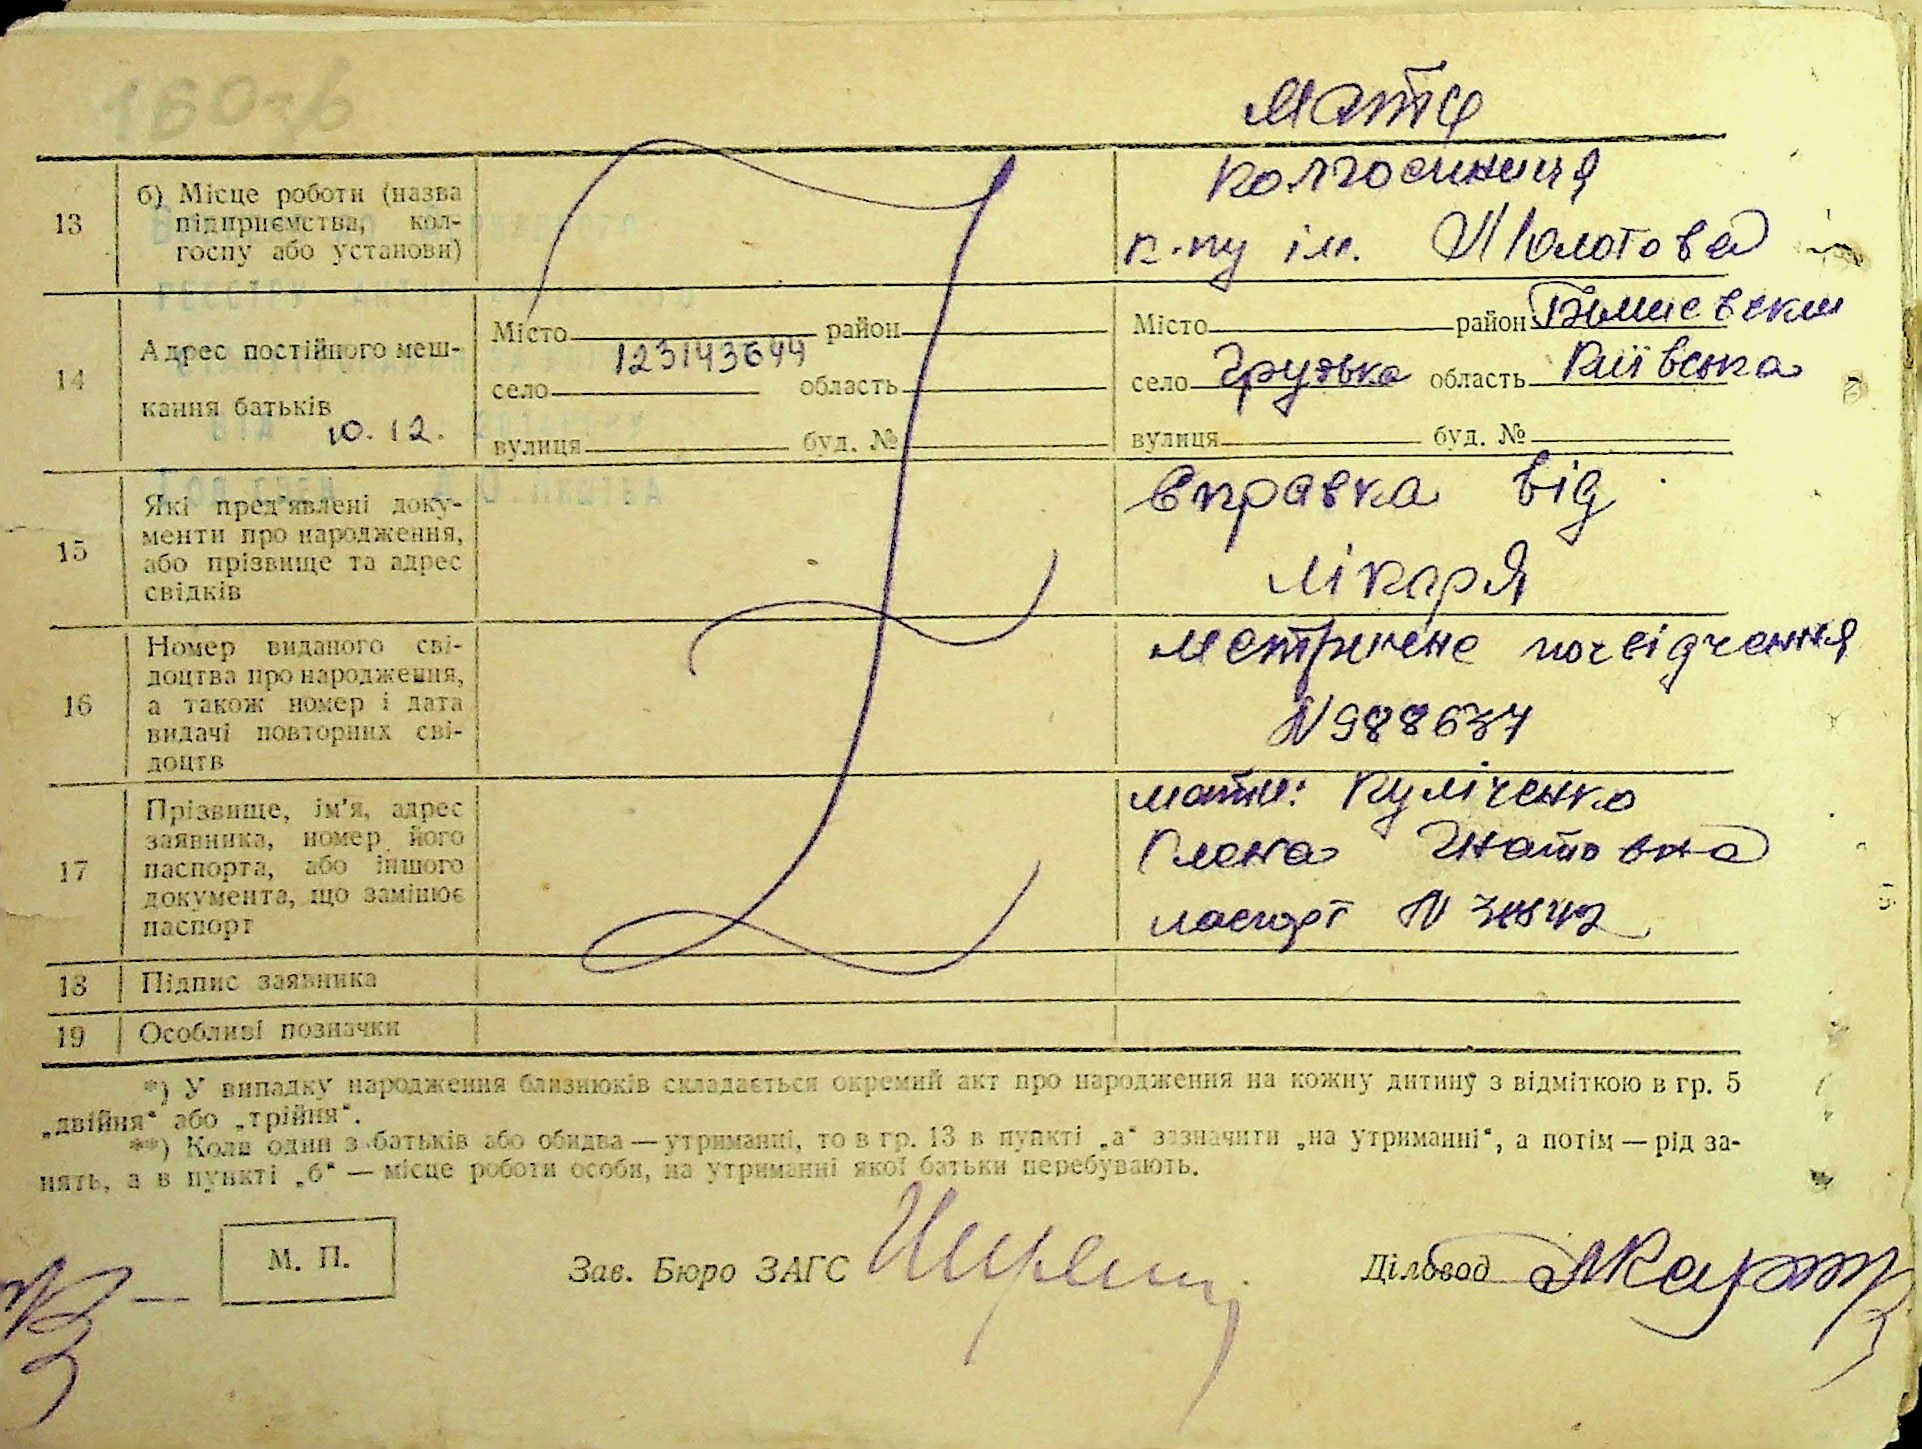 160зв
Мати
13 б) Місце роботи (назва підприємства, колгоспу або установи)
колгоспниця
к-пу ім. Молотова
14 Адрес постійного мешкання батьків
10.12.
Місто район
123143644
село область
вулиця буд. №
Місто район
село Грузьке область Київська
вулиця буд. №
15 Які пред'явлені документи про народження, або прізвище та адрес свідків
Справка від
лікаря
16 Номер виданого свідоцтва про народження, а також номер і дата видачі повторних свідоцтв
метричне посвідчення
N 988637
17 Прізвище, ім'я, адрес заявника, номер його паспорта, або іншого документа, що замінює паспорт
мати: Куліченко
Ігнатовна
паспорт N
18 Підпис заявника
19 Особливі позначки
*) У випадку народження близнюків складається окремий акт про народження на кожну дитину з відміткою в гр. 5
„двійня“ або „трійня“.
**) Коли один з батьків або обидва — утриманці, то в гр. 13 в пункті „а“ зазначити „на утриманні“, а потім — рід за-
нять, а в пункті „б“ — місце роботи особи, на утриманні якої батьки перебувають.
М. П.
Зав. Бюро ЗАГС
Діловод